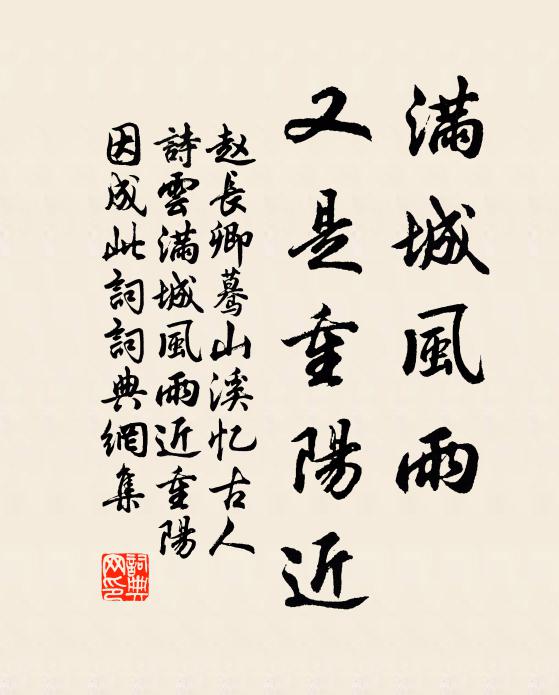 滿城風雨
又是重陽近
赵長卿驀山溪忆古人
詩雲滿城風雨近重陽
因成此詞詞典網集
詞典
网印